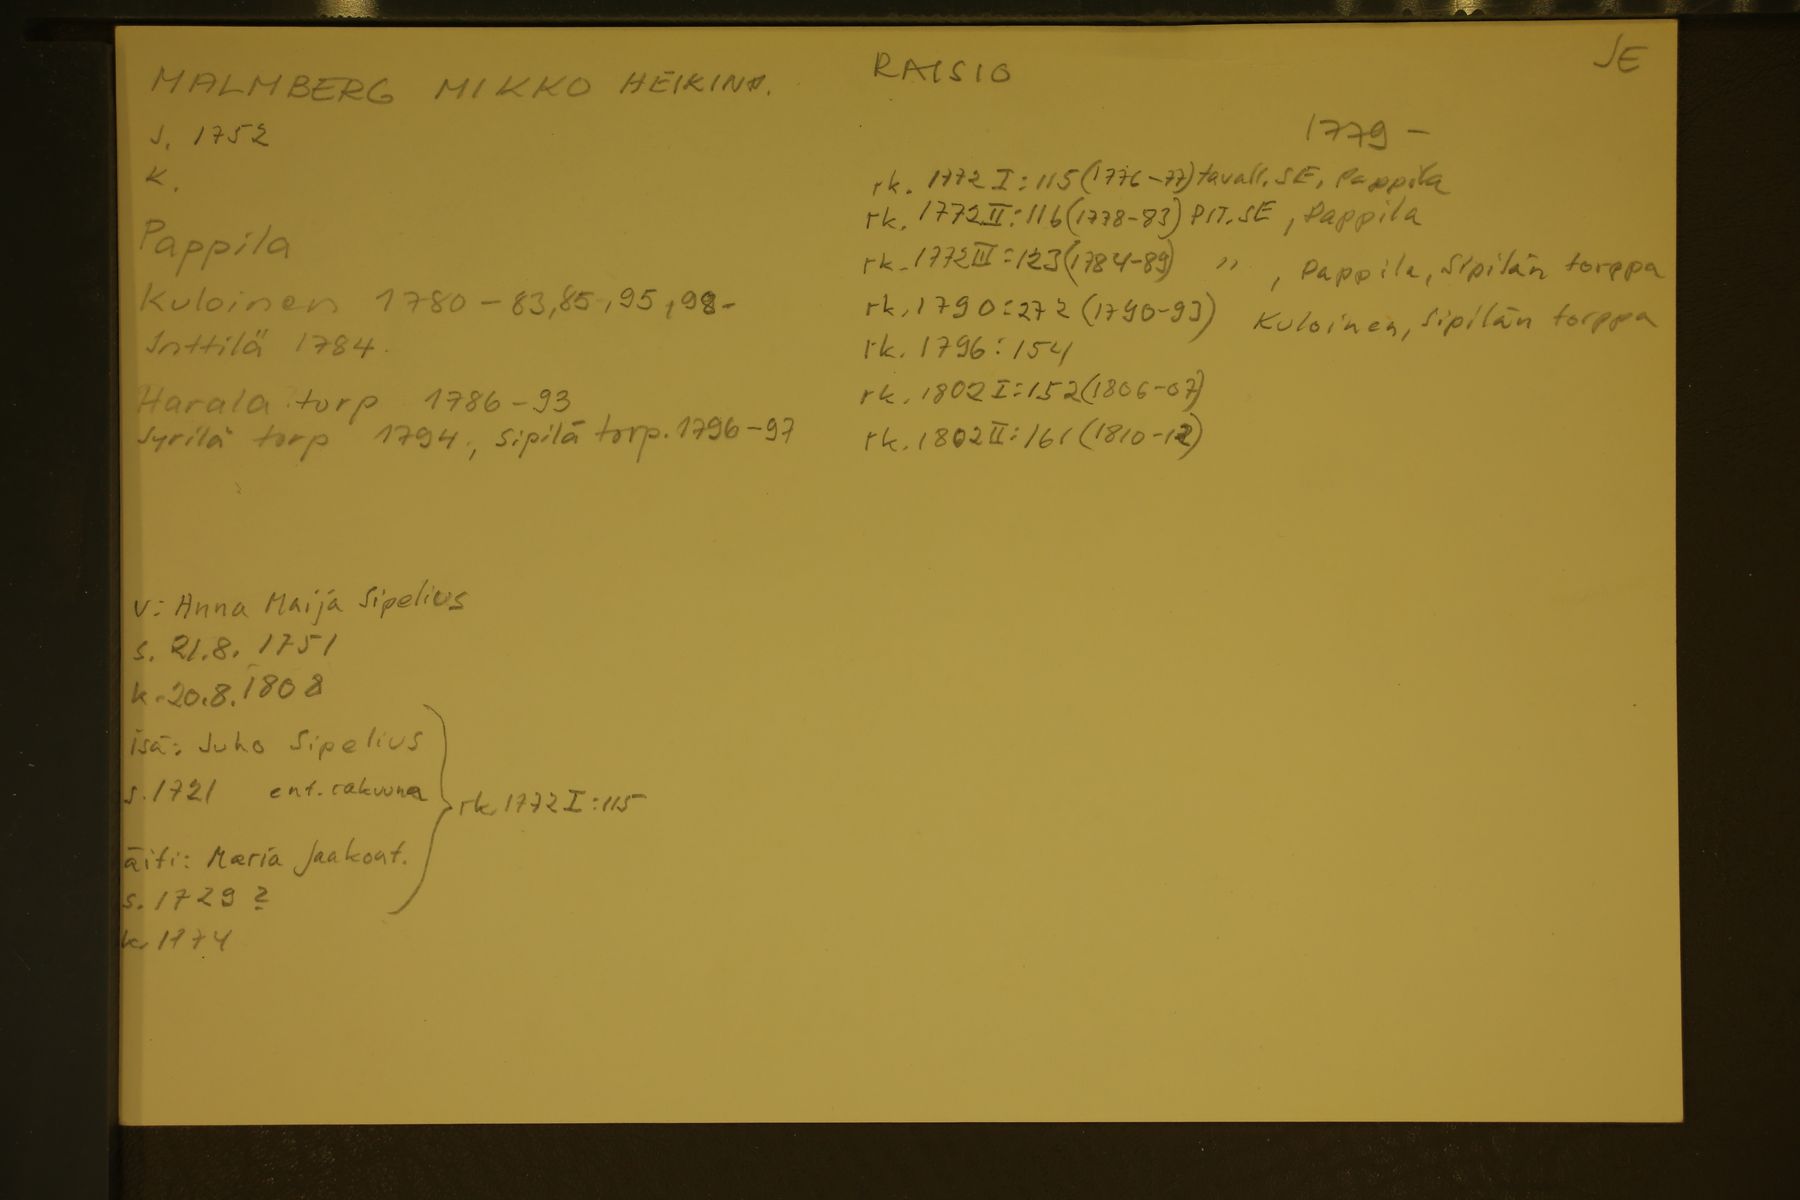 MALMBERG MIKKO HEIKINP. RAISIO SE
s. 1752
k.
Pappila
Kuloinen 1780-83, 85-, 95, 98-
Inttilä 1784.
Harala torp 1786-93
Syrilä torp 1794, Sipilä torp. 1796-97
1779 -
rk. 1772 I:115 (1776-77) tavall. SE, Pappila
rk. 1772 II:116 (1778-83) PIT. SE, Pappila
rk. 1772 III:123 (1784-89) " , Pappila, Sipilän torppa
rk. 1790:272 (1790-93) Kuloinen, Sipilän torppa
rk. 1796:154
rk. 1802 I:152 (1806-07)
rk. 1802 II:161 (1810-12)
v: Anna Maija Sipelius
s. 21.8. 1751
k. 20.8. 1808
isä: Juho Sipelius
s. 1721 ent. rakuuna
rk. 1772 I:115
äiti: Maria Jaakont.
s. 1729 ?
k. 1774